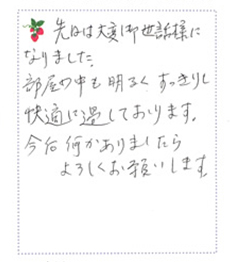 先日は大変御世話様に
なりました.
部屋の中も明るく すっきりし
快適に過しております.
今后何かありましたら
よろしくお願いします.